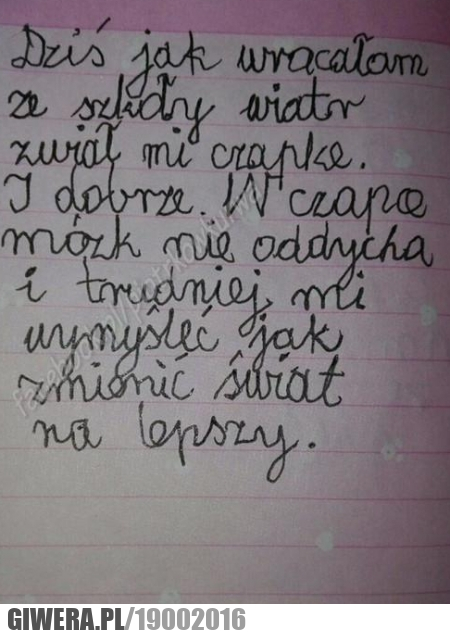 Dziś jak wracałam
ze szkoły wiatr
zwiał mi czapkę.
I dobrze. W czapce
mózk nie oddycha
i trudniej mi
wymyśleć jak
zmienić świat
na lepszy.
GIWERA.PL/19002016